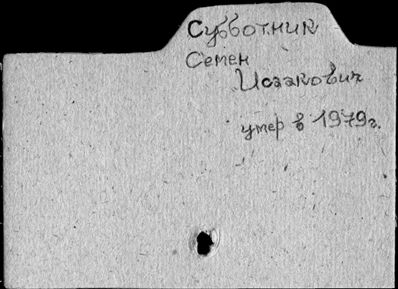 Субботник
Семен
Исаакович
умер в 1979г.